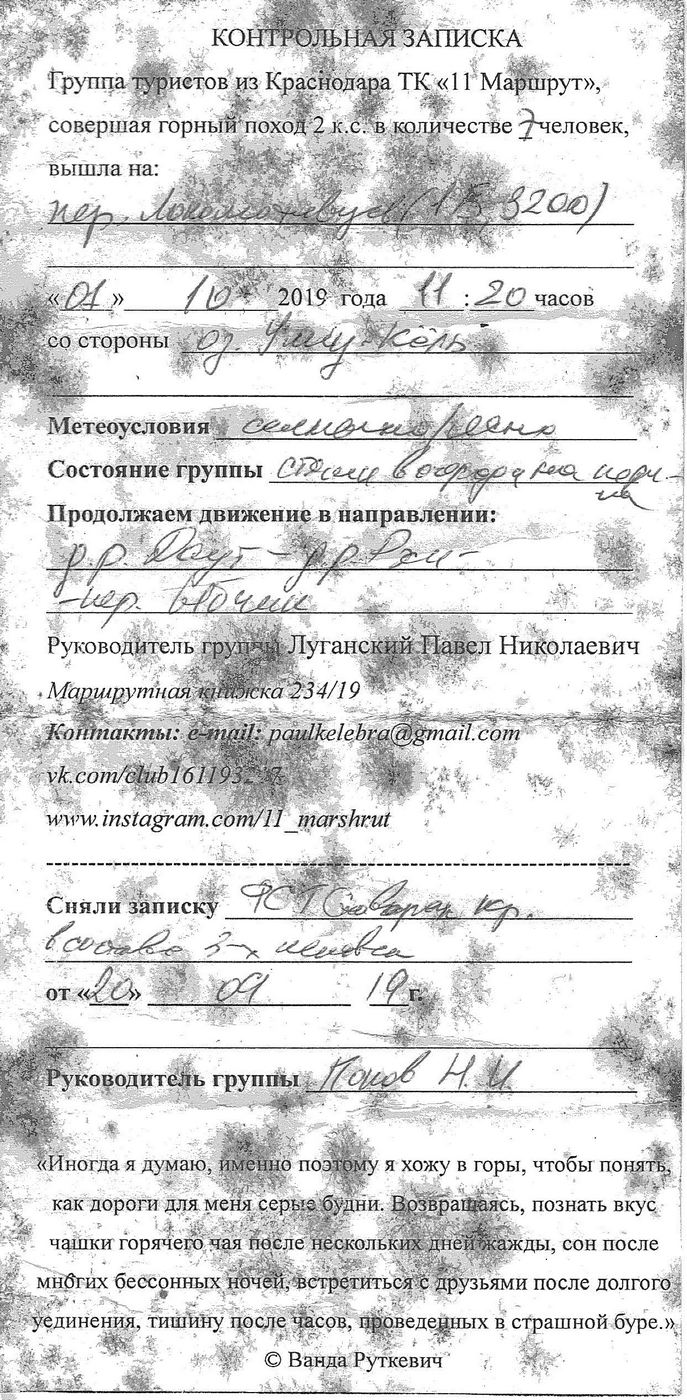 КОНТРОЛЬНАЯ ЗАПИСКА
Группа туристов из Краснодара ТК «11 Маршрут»,
совершая горный поход 2 к.с. в количестве 7 человек,
вышла на:
пер. (1Б, 3200)
«01» 10 2019 года 11 : 20 часов
со стороны оз. Уллу-Кёль
Метеоусловия
Состояние группы
Продолжаем движение в направлении:
р.р. Даут –
– пер.
Руководитель группы Луганский Павел Николаевич
Маршрутная книжка 234/19
Контакты: e-mail: paulkelebra@gmail.com
vk.com/club161193
www.instagram.com/11_marshrut
Сняли записку ФСТ кр.
в составе 3-х человек
от «20» 09 19 г.
Руководитель группы Попов Н. И
«Иногда я думаю, именно поэтому я хожу в горы, чтобы понять,
как дороги для меня серые будни. Возвращаясь, познать вкус
чашки горячего чая после нескольких дней жажды, сон после
многих бессонных ночей, встретиться с друзьями после долгого
уединения, тишину после часов, проведенных в страшной буре.»
© Ванда Руткевич